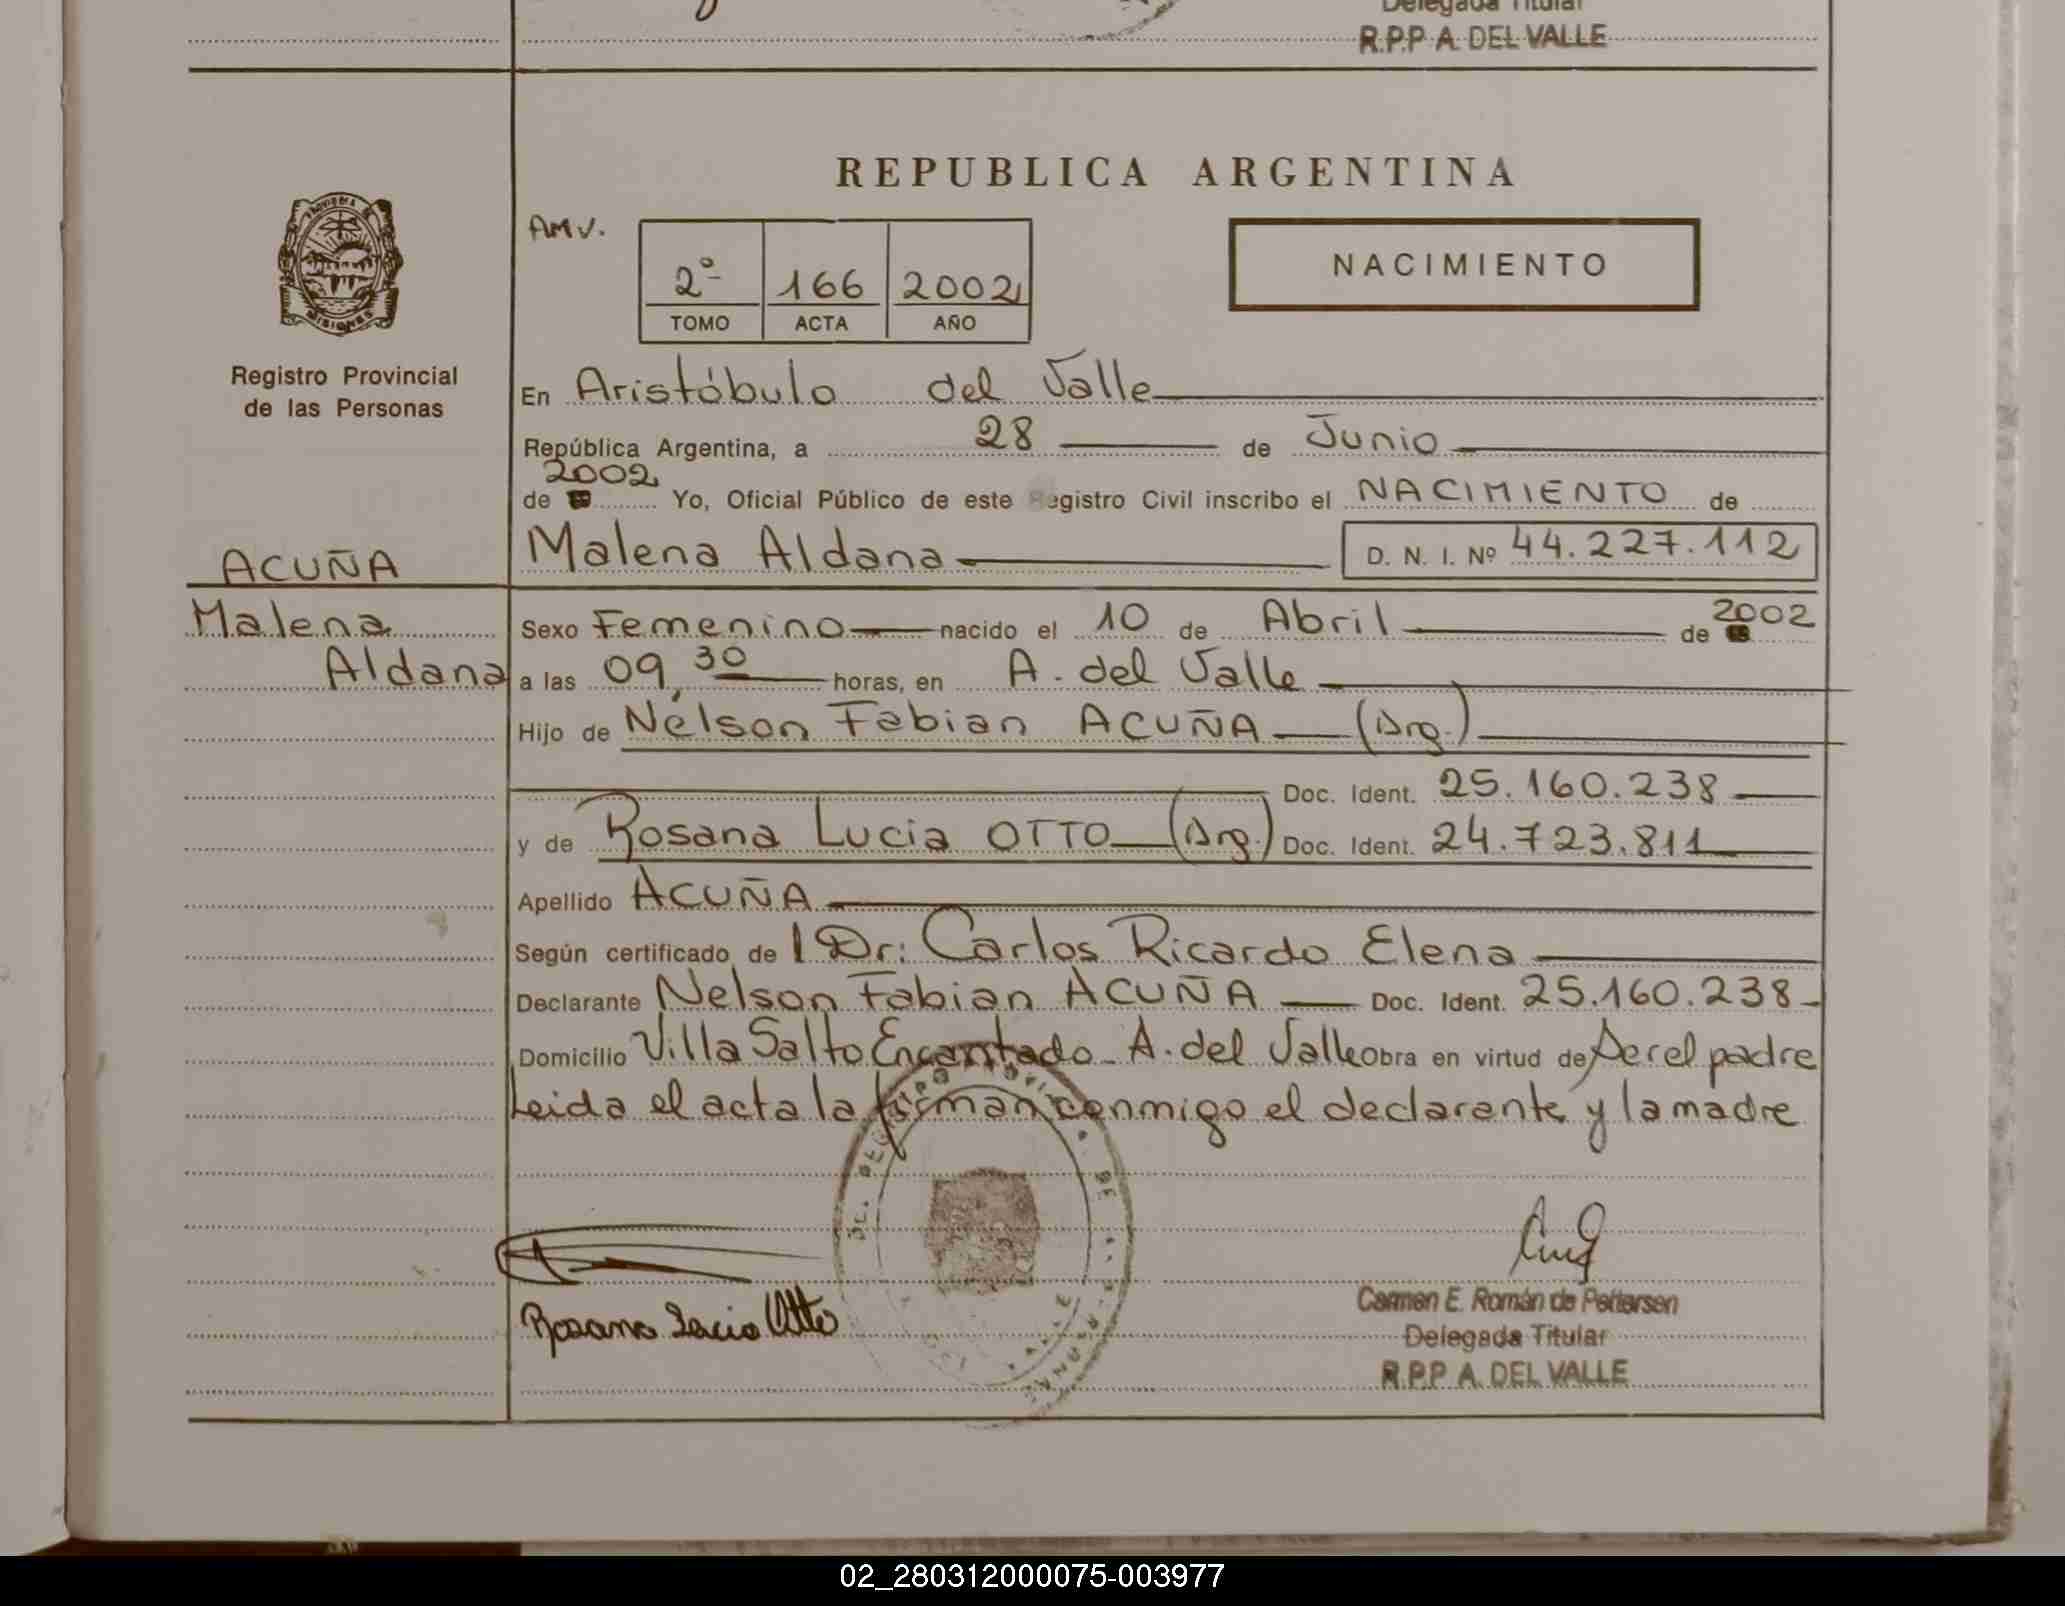 Delegada Titular
R.P.P A. DEL VALLE
REPUBLICA ARGENTINA
PROVINCIA DE
MISIONES
Registro Provincial
de las Personas
AMV.
2º 166 2002
TOMO ACTA AÑO
NACIMIENTO
En Aristóbulo del Valle
República Argentina, a 28 de Junio
de 2002 Yo, Oficial Público de este Registro Civil inscribo el NACIMIENTO de
Malena Aldana D. N. I. Nº 44.227.112
ACUÑA
Malena
Aldana
Sexo Femenino nacido el 10 de Abril de 2002
a las 09,30 horas, en A. del Valle
Hijo de Nélson Fabian ACUÑA (Arg.)
Doc. Ident. 25.160.238
y de Rosana Lucia OTTO (Arg.) Doc. Ident. 24.723.811
Apellido ACUÑA
Según certificado de l Dr: Carlos Ricardo Elena
Declarante Nelson Fabian ACUÑA Doc. Ident. 25.160.238
Domicilio Villa Salto Encantado - A. del Valle Obra en virtud de Ser el padre
Leida el acta la firman conmigo el declarante y la madre
Rosana Lucia Otto
Carmen E. Román de Pettersen
Delegada Titular
R.P.P A. DEL VALLE
02_280312000075-003977